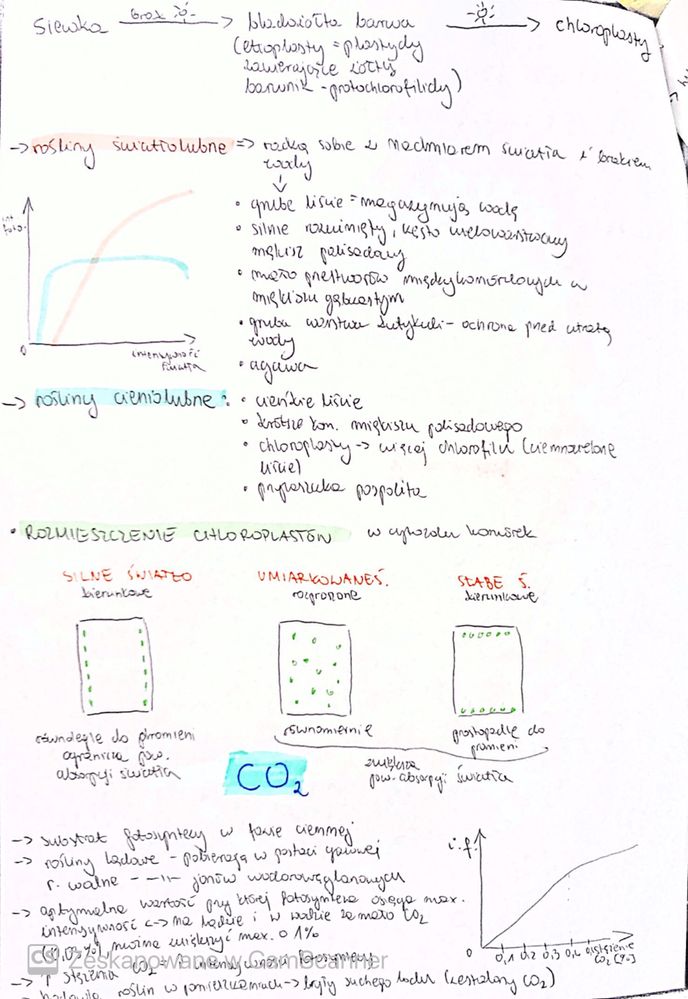 Siewka brak → bladożółta barwa → chloroplasty
(etioplasty = plastydy
zawierające żółty
barwnik - protochlorofilidy)
→ rośliny światłolubne => radzą sobie z nadmiarem światła i brakiem
wody
• grube liście = magazynują wodę
• silnie rozwinięty, często wielowarstwowy
miękisz palisadowy
• mało przestworów międzykomórkowych w
miękiszu gąbczastym
• gruba warstwa kutykuli - ochrona przed utratą
wody
• agawa
int.
foto.
0
intensywność
światła
→ rośliny cieniolubne: • cienkie liście
• krótsze kom. miękiszu palisadowego
• chloroplasty → więcej chlorofilu (ciemnozielone
liście)
• pospolita
• ROZMIESZCZENIE CHLOROPLASTÓW w komórek
SILNE ŚWIATŁO UMIARKOWANE Ś. SŁABE Ś.
kierunkowe rozproszone kierunkowe
równolegle do promieni
ogranicza pow.
absorpcji światła
równomiernie
prostopadle do
promieni
zwiększa
pow. absorpcji światła
CO₂
→ substrat fotosyntezy w fazie ciemnej
→ rośliny lądowe - pobierają w postaci gazowej
r. wodne - -||- jonów wodorowęglanowych
→ optymalna wartość przy której fotosynteza osiąga max.
intensywność <-> na lądzie i w wodzie za mało CO₂
(0,03%) można zwiększyć max. 0,1%
→ ↑ stężenia CO₂ = ↑ intensywności fotosyntezy
roślin w pomieszczeniach → bryły suchego lodu (zestalony CO₂)
i.f.
0 0,1 0,2 0,3 0,4 stężenie
CO₂ [%]
CS Zeskanowane w CamScanner